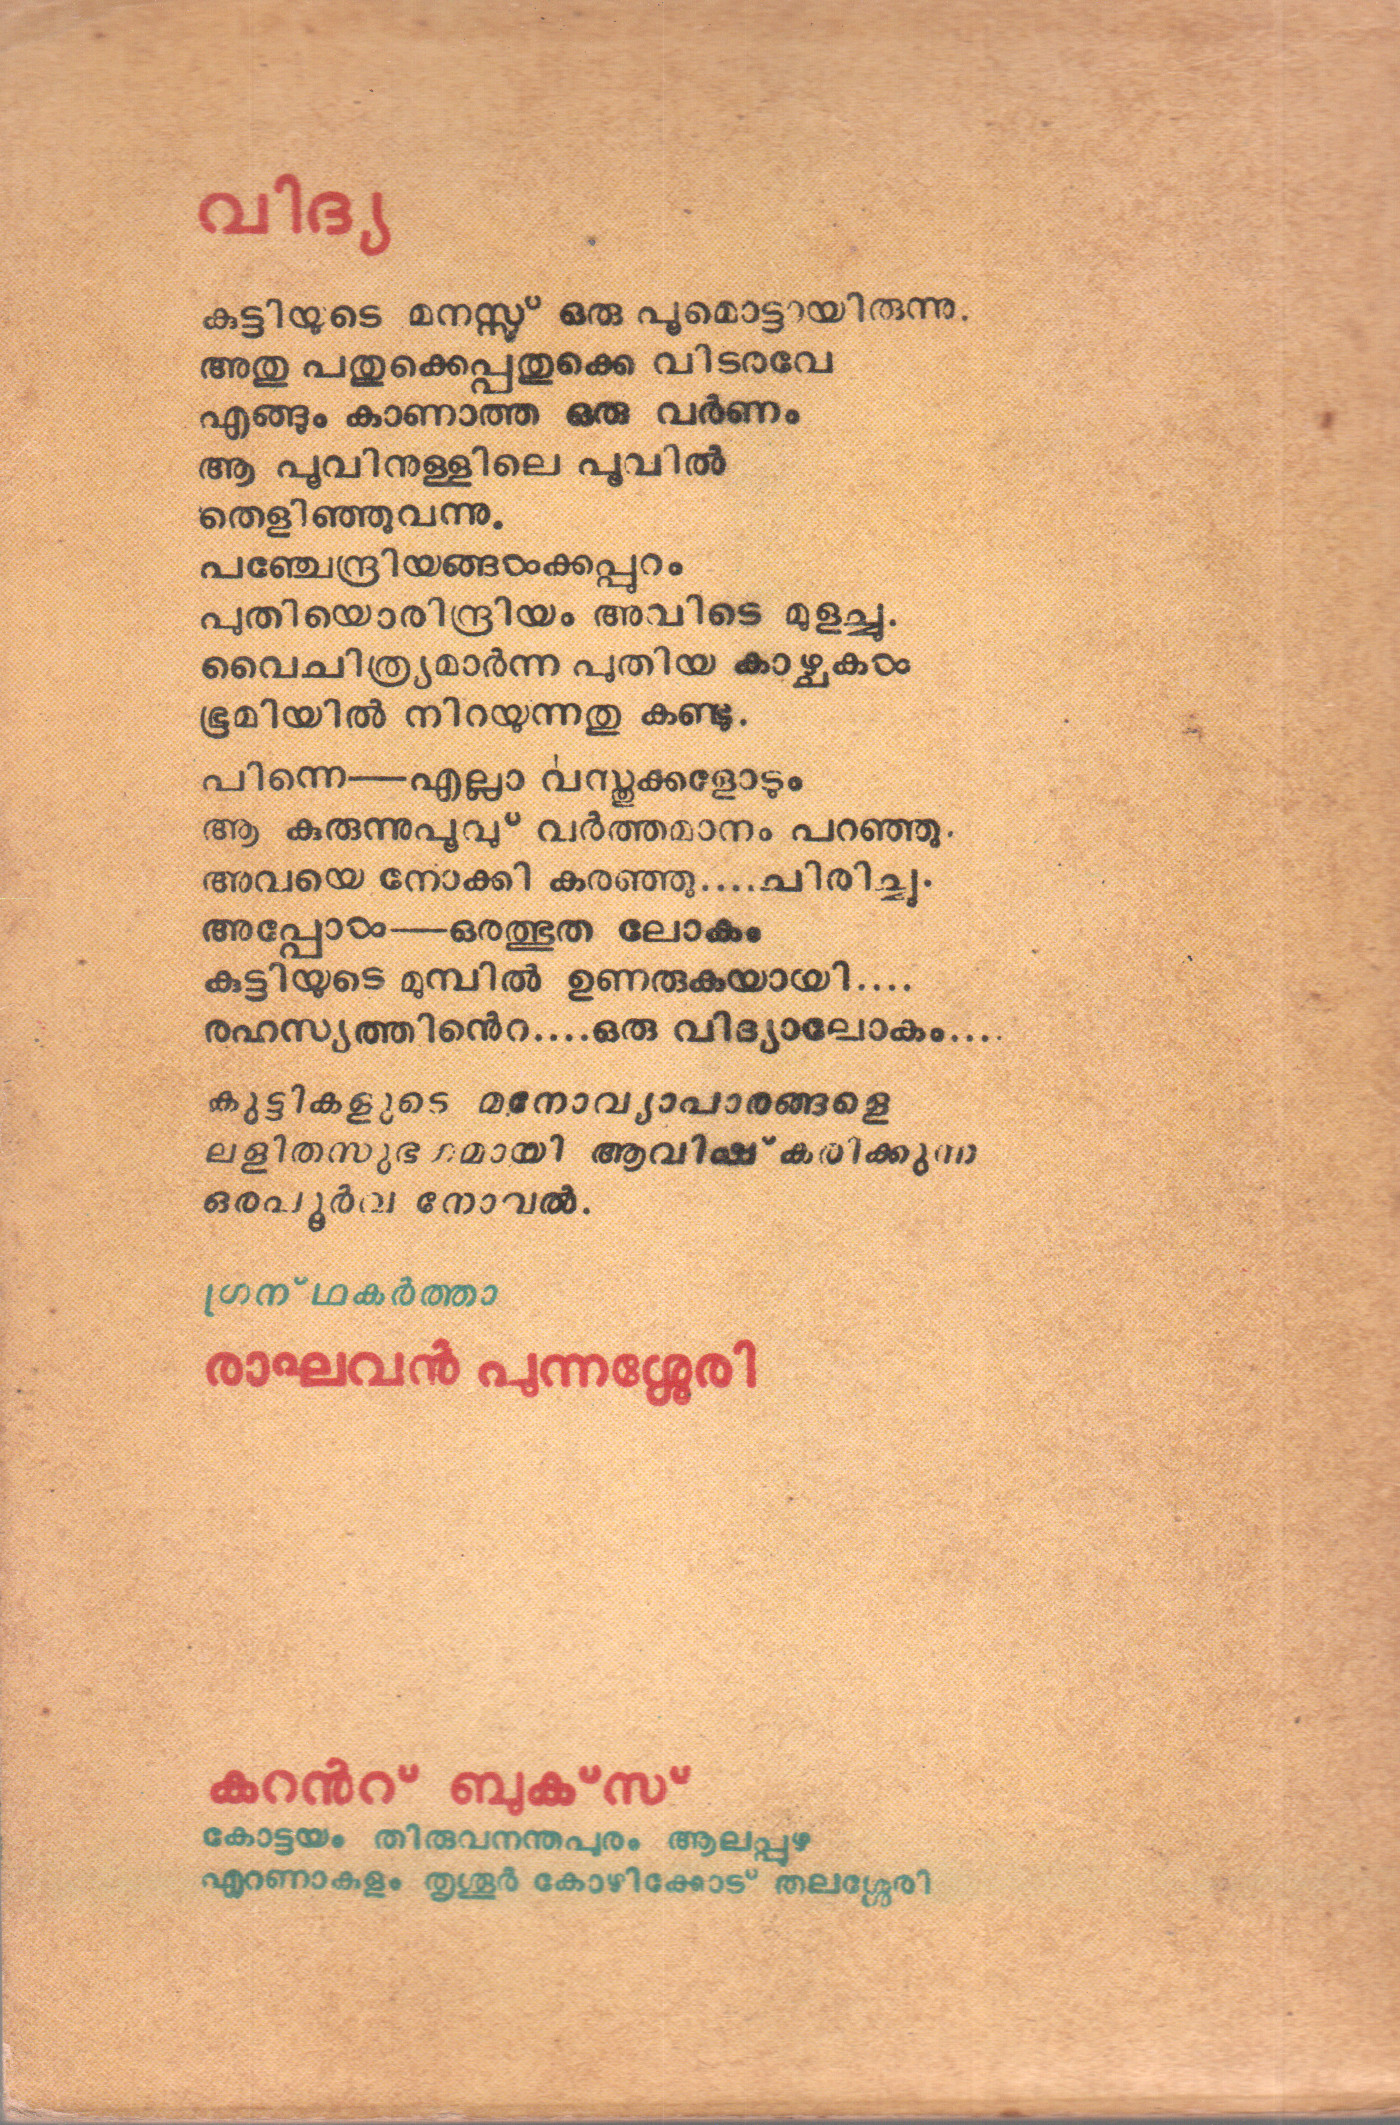 വിദ്യ
കുട്ടിയുടെ മനസ്സ് ഒരു പൂമൊട്ടായിരുന്നു.
അതു പതുക്കെപ്പതുക്കെ വിടരവേ
എങ്ങും കാണാത്ത ഒരു വർണം
ആ പൂവിനുള്ളിലെ പൂവിൽ
തെളിഞ്ഞുവന്നു.
പഞ്ചേന്ദ്രിയങ്ങൾക്കപ്പുറം
പുതിയൊരിന്ദ്രിയം അവിടെ മുളച്ചു.
വൈചിത്ര്യമാർന്ന പുതിയ കാഴ്ചകൾ
ഭൂമിയിൽ നിറയുന്നതു കണ്ടു.
പിന്നെ—എല്ലാ വസ്തുക്കളോടും
ആ കുരുന്നുപൂവു് വർത്തമാനം പറഞ്ഞു.
അവയെ നോക്കി കരഞ്ഞു....ചിരിച്ചു.
അപ്പോൾ—ഒരത്ഭുത ലോകം
കുട്ടിയുടെ മുമ്പിൽ ഉണരുകയായി....
രഹസ്യത്തിൻെറ....ഒരു വിദ്യാലോകം....
കുട്ടികളുടെ മനോവ്യാപാരങ്ങളെ
ലളിതസുഭഗമായി ആവിഷ്കരിക്കുന്ന
ഒരപൂർവ നോവൽ.
ഗ്രന്ഥകർത്താ
രാഘവൻ പുന്നശ്ശേരി
കറൻറ് ബുക്സ്
കോട്ടയം തിരുവനന്തപുരം ആലപ്പുഴ
എറണാകുളം തൃശൂർ കോഴിക്കോട് തലശ്ശേരി